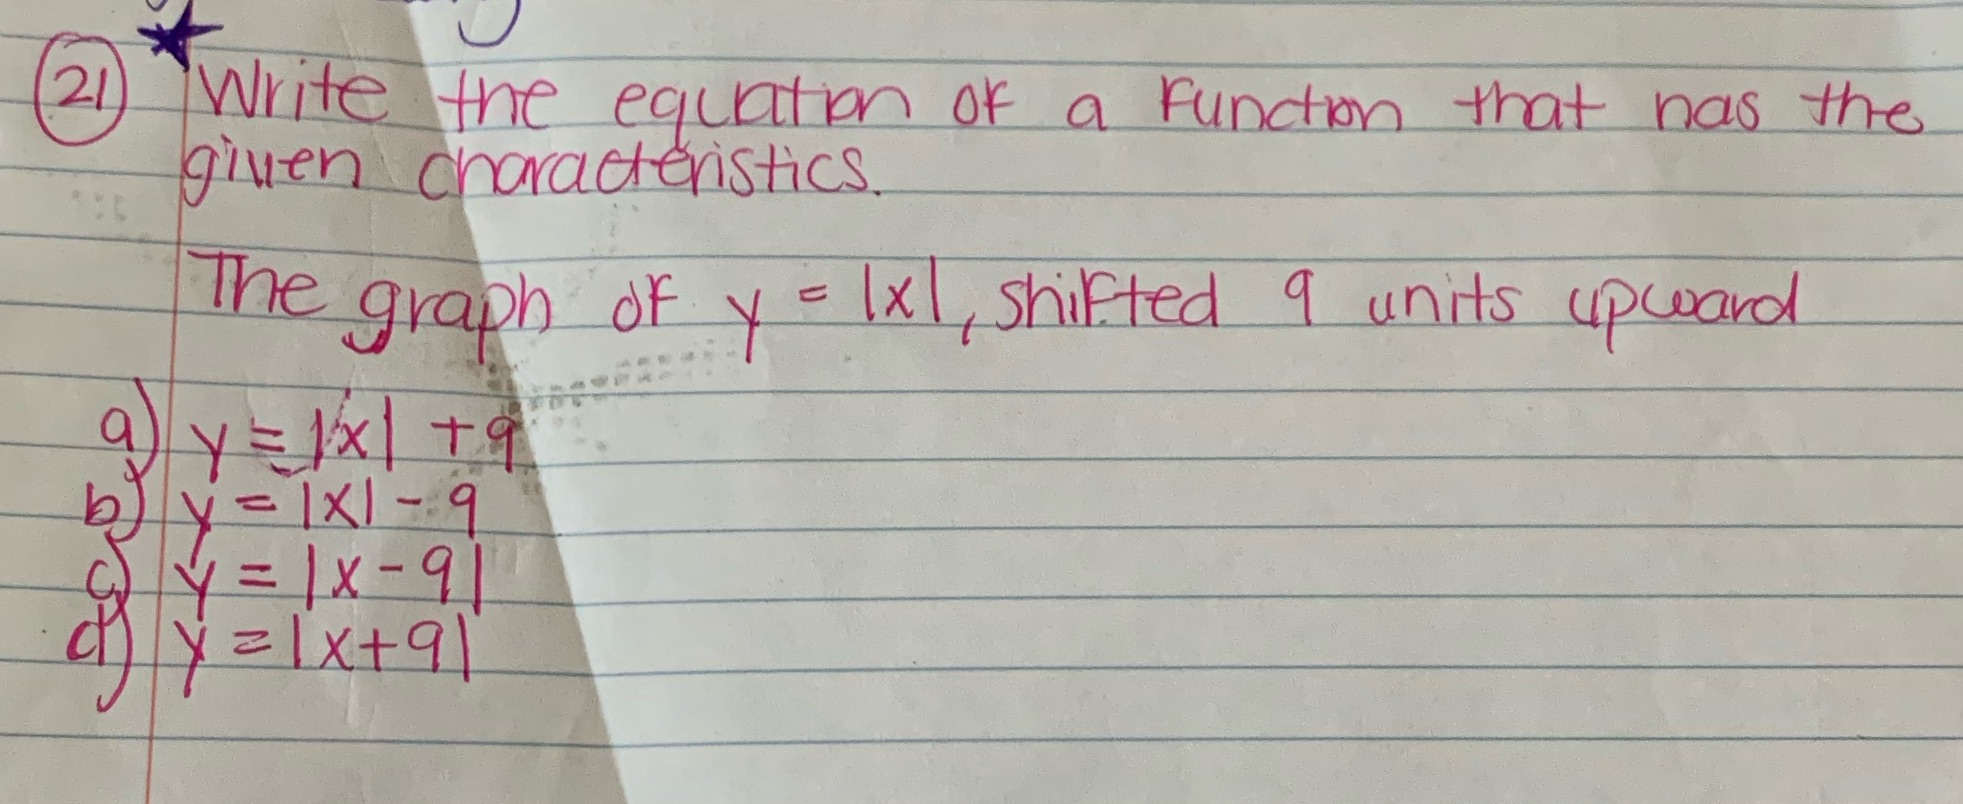 21 Write the equation of a function that has the
given characteristics.
The graph of y = |x|, shifted 9 units upward
a) y = |x| + 9
b) y = |x| - 9
c) y = |x - 9|
d) y = |x + 9|